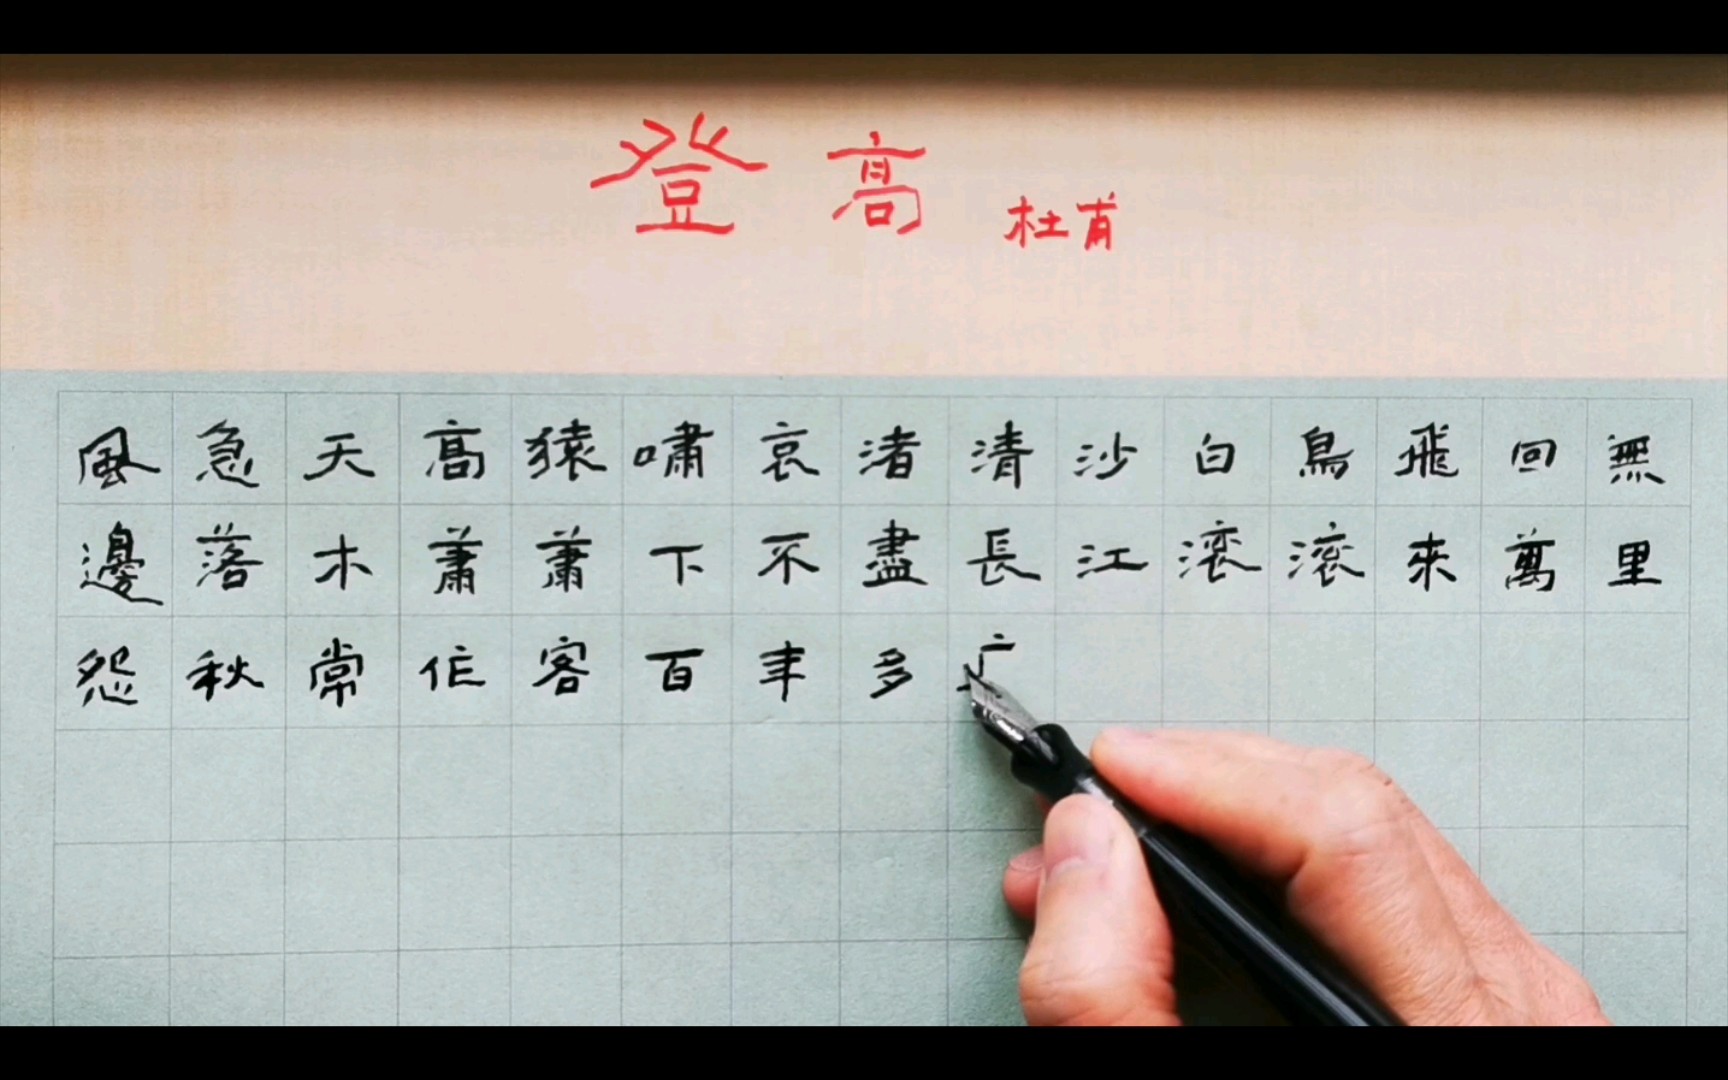 登高 杜甫
風急天高猿嘯哀渚清沙白鳥飛回無
邊落木蕭蕭下不盡長江滾滾來萬里
怨秋常作客百年多